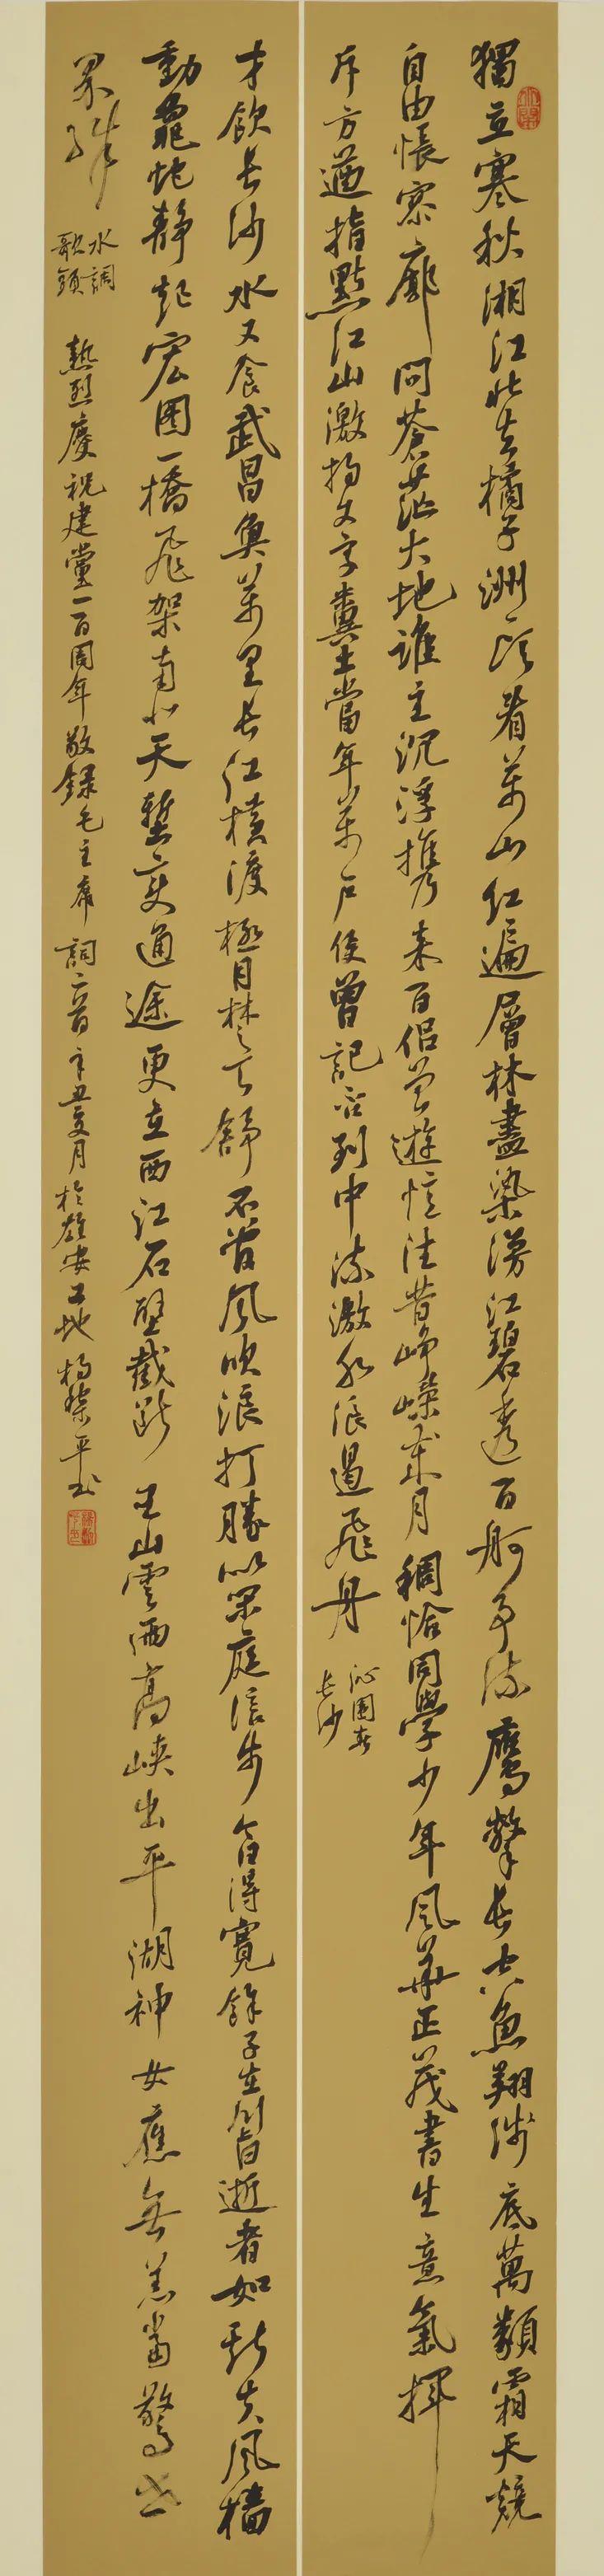 獨立寒秋湘江北去橘子洲頭看萬山紅遍層林盡染漫江碧透百舸爭流鷹擊長空魚翔淺底萬類霜天競
自由悵寥廓問蒼茫大地誰主沉浮攜來百侶曾遊憶往昔崢嶸歲月稠恰同學少年風華正茂書生意氣揮
斥方遒指點江山激揚文字糞土當年萬戶侯曾記否到中流激水浪遏飛舟
沁園春
長沙
才飲長沙水又食武昌魚萬里長江橫渡極目楚天舒不管風吹浪打勝似閑庭信步今日得寬餘子在川上曰逝者如斯夫風檣
動龜蛇靜起宏圖一橋飛架南北天塹變通途更立西江石壁截斷巫山雲雨高峽出平湖神女應無恙當驚世
界殊
水調
歌頭
熱烈慶祝建黨一百周年敬錄毛主席詞二首辛丑夏月於雄安工地楊平書